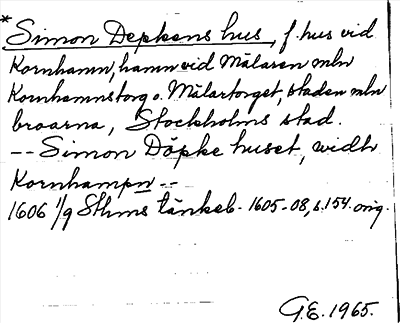 * Simon Depkens hus, f. hus vid
Kornhamn, hamn vid Mälaren mln
Kornhamnstorg o. Mälartorget, staden mln
broarna, Stockholms stad.
-- Simon Döpke huset, widh
Kornhampn --
1606 1/9 Sthms tänkeb. 1605-08, s. 154. orig.
G.E. 1965.